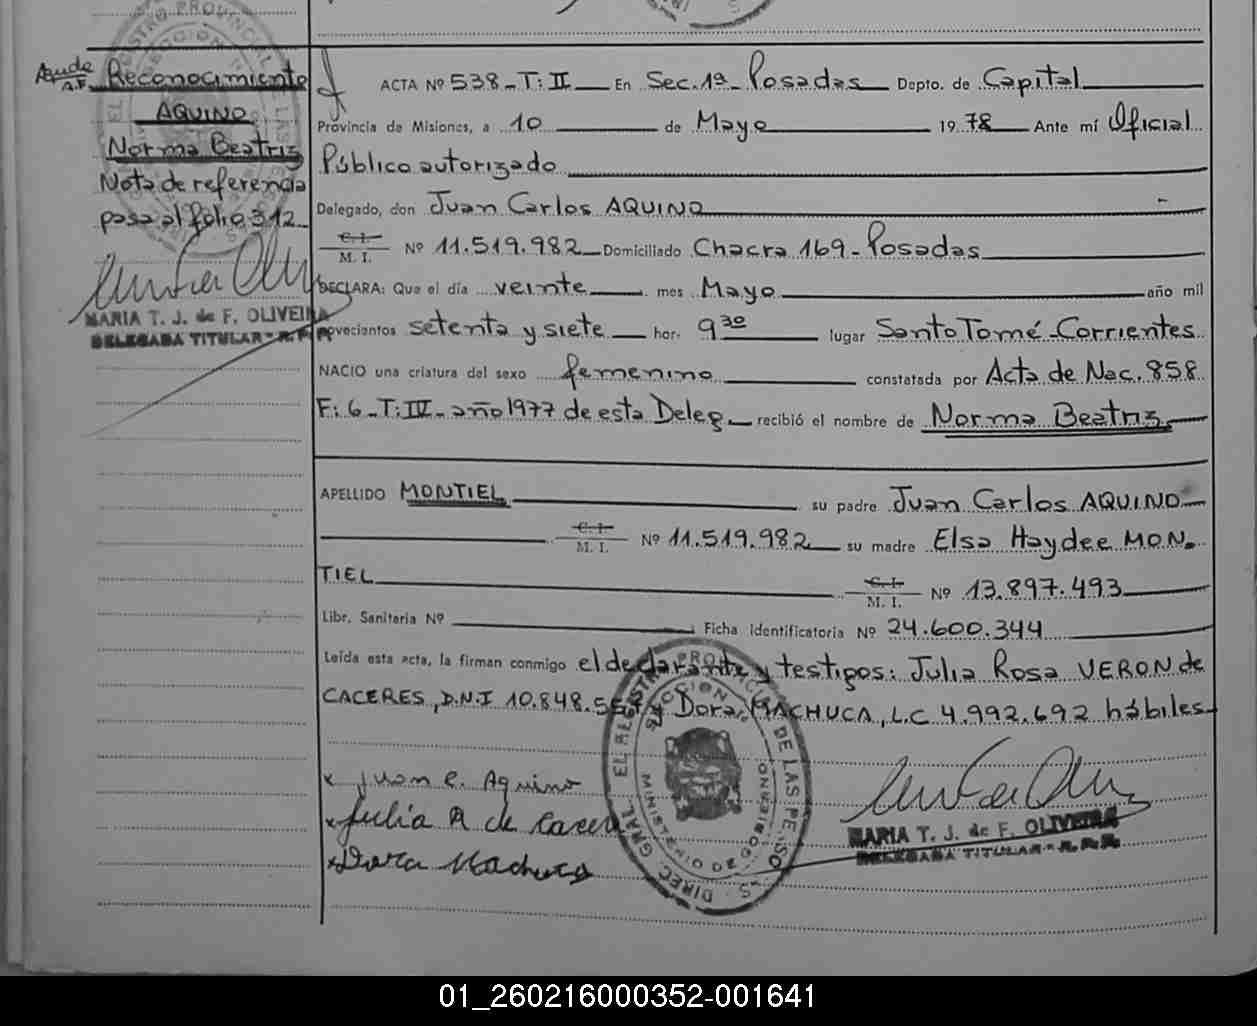 Reconocimiento
AQUINO
Norma Beatriz
Nota de referencia
pasa al folio 312
MARIA T. J. de F. OLIVEIRA
DELEGADA TITULAR - R.P.P.
ACTA Nº 538 - T: II En Sec. 1ª - Posadas Depto. de Capital
Provincia de Misiones, a 10 de Mayo 1978 Ante mí Oficial
Público autorizado
Delegado, don Juan Carlos AQUINO
C. I.
M. I. Nº 11.519.982 Domiciliado Chacra 169 - Posadas
DECLARA: Que el día veinte mes Mayo año mil
novecientos setenta y siete hor. 9 30 lugar Santo Tomé - Corrientes
NACIO una criatura del sexo femenino constatada por Acta de Nac. 858
F: 6 - T: III - año 1977 de esta Deleg recibió el nombre de Norma Beatriz
APELLIDO MONTIEL su padre Juan Carlos AQUINO
C. I.
M. I. Nº 11.519.982 su madre Elsa Haydee MON-
TIEL C. I.
M. I. Nº 13.897.493
Libr. Sanitaria Nº Ficha Identificatoria Nº 24.600.344
Leída esta acta, la firman conmigo el declarante y testigos: Julia Rosa VERON de
CACERES, D.N.I 10.848. y Dora MACHUCA, L.C 4.992.692 hábiles
x Juan C. Aquino
x Julia R de Caceres
x Dora Machuca
DIREC. GRAL. EL REGISTRO PROVINCIAL DE LAS PERSONAS
MINISTERIO DE GOBIERNO
MARIA T. J. de F. OLIVEIRA
DELEGADA TITULAR - R.P.P.
01_260216000352-001641